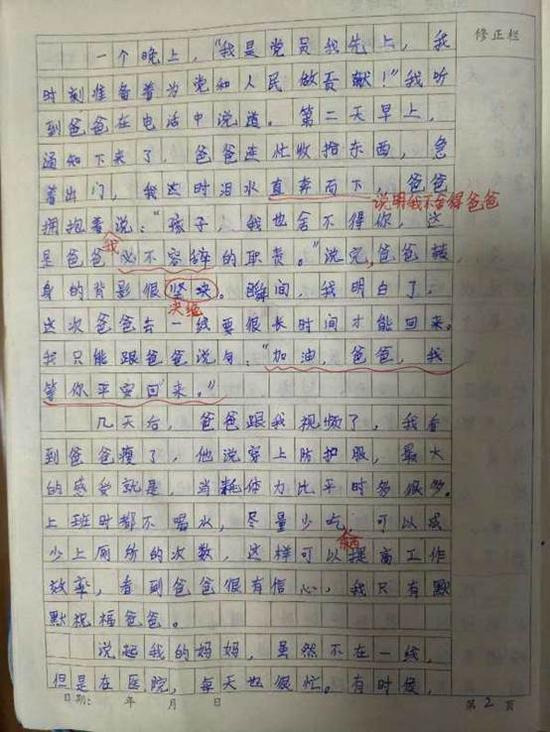 修正栏
一个晚上，“我是党员我先上，我
时刻准备着为党和人民做贡献！”我听
到爸爸在电话中说道。第二天早上，
通知下来了，爸爸连忙收拾东西，急
着出门，我这时泪水直奔而下，爸爸
说明我不舍得爸爸
拥抱着说：“孩子，我也舍不得你，这
是爸爸义不容辞的职责。”说完，爸爸转
身的背影很坚决。瞬间，我明白了，
决绝
这次爸爸去一线要很长时间才能回来。
我只能跟爸爸说句：“加油，爸爸，我
等你平安回来。”
几天后，爸爸跟我视频了，我看
到爸爸瘦了，他说穿上防护服，最大
的感受就是，消耗体力比平时多很多。
上班时都不喝水，尽量少吃，可以减
东西
少上厕所的次数，这样可以提高工作
效率，看到爸爸很有信心，我只有默
默祝福爸爸。
说起我的妈妈，虽然不在一线，
但是在医院，每天也很忙。有时候，
日期： 年 月 日 第 2 页